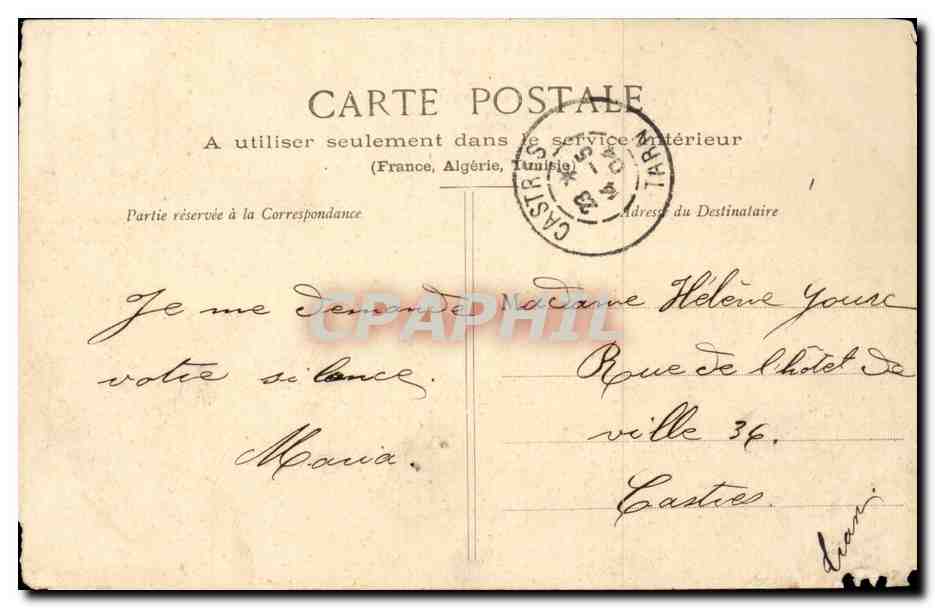 CARTE POSTALE
A utiliser seulement dans le service intérieur
(France, Algérie, Tunisie)
CASTRES TARN
23
5-04
Partie réservée à la Correspondance
Adresse du Destinataire
Je me demande
votre silence.
Maria.
Madame Hélène
Rue de l'hôtel de
ville 36.
Castres.
CPAPHIL